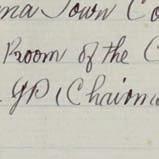 na Town Co
Room of the C
JP (Chairma